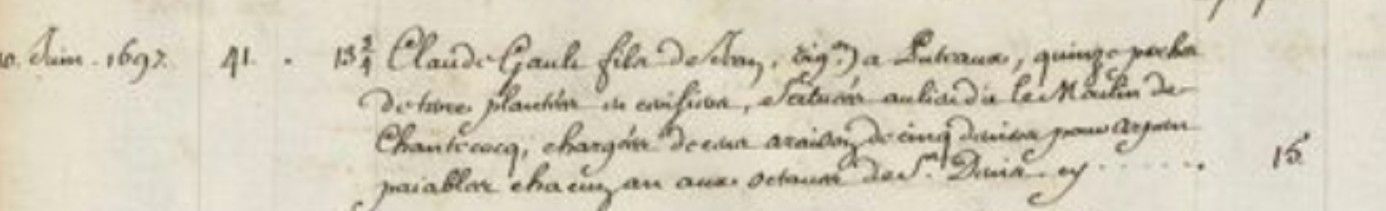 0. Juin. 1697. 41. 13 3/4 Claude Gaule fils de Jean, vig.on a Puteaux, quinze perches
de terre plantées en cerisiers, scituées au lieu dit le Moulin de
Chantecocq, chargées de cens a raison de cinq deniers pour arpen
paiables chacun an aux octaves de St. Denis. cy . . . . . . . 15